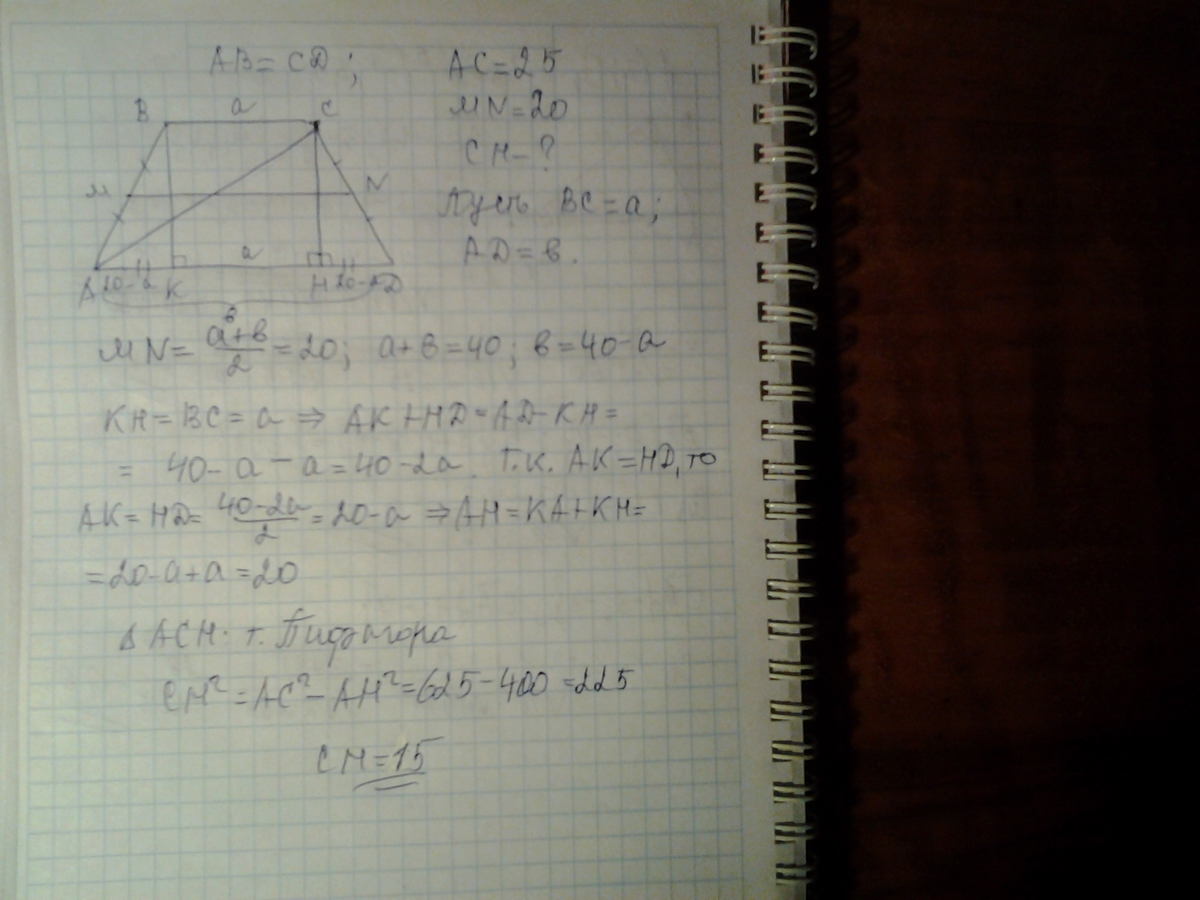 AB = CD; AC = 25
MN = 20
CH - ?
Пусть BC = a;
AD = в.
B a C
M N
a
A 20-a K H 20-a D
в
MN = a+в/2 = 20; a+в = 40; в = 40-a
KH = BC = a ⇒ AK + HD = AD - KH =
= 40 - a - a = 40 - 2a. Т.к. AK = HD, то
AK = HD = 40-2a/2 = 20-a ⇒ AH = KA + KH =
= 20-a+a = 20
Δ ACH. т. Пифагора
CH² = AC² - AH² = 625 - 400 = 225
CH = 15